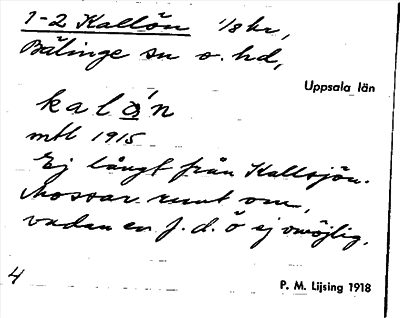 1-2 Kallön 1/8 kr,
Bälinge sn o. hd,
Uppsala län
kalǫ́n
mtl 1915
Ej långt från Kallsjön.
Mossar runt om,
vadan en f. d. ö ej omöjlig.
4
P. M. Lijsing 1918